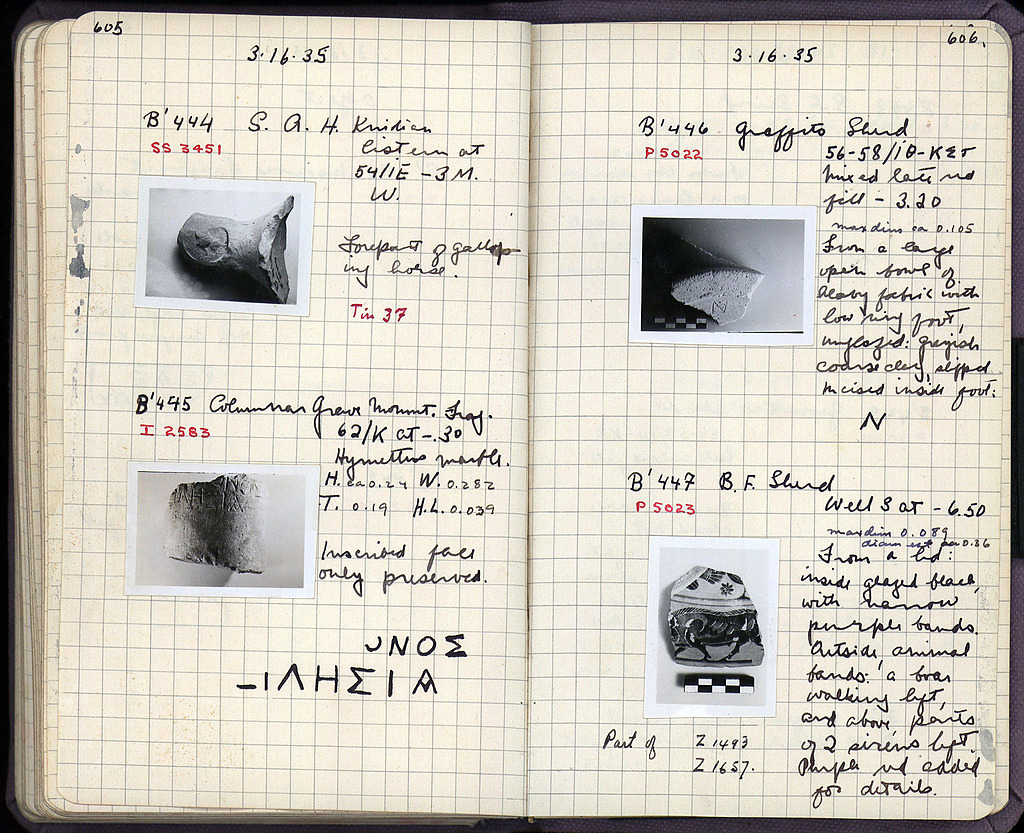 605
3·16·35
B'444 S. A. H. Knidian
SS 3451
Cistern at
54/ΙΕ -3 M.
W.
Forepart of gallop
ing horse.
Tin 37
B'445 Columnar Grave Monmt. Frag.
I 2583
62/K at -.30
Hymettus marble.
H. ca 0.24 W. 0.282
T. 0.19 H.L. 0.039
Inscribed face
only preserved.
ΟΝΟΣ
ΙΛΗΣΙΑ
606.
3·16·35
B'446 Graffito Sherd
P 5022
56-58/ΙΘ-ΚΣΤ
Mixed late rd
fill - 3.20
max dim ca 0.105
From a large
open bowl of
heavy fabric with
low ring foot,
unglazed: greyish
coarse clay, slipped
Incised inside foot:
N
B'447 B.F. Sherd
P 5023
Well 3 at -6.50
max dim 0.089
diam est ca 0.36
From a lid:
inside glazed black,
with narrow
purple bands.
Outside, animal
bands: a boar
walking left,
and above, parts
of 2 sirens left.
Purple rd added
for details.
Part of Z 1493
Z 1657.